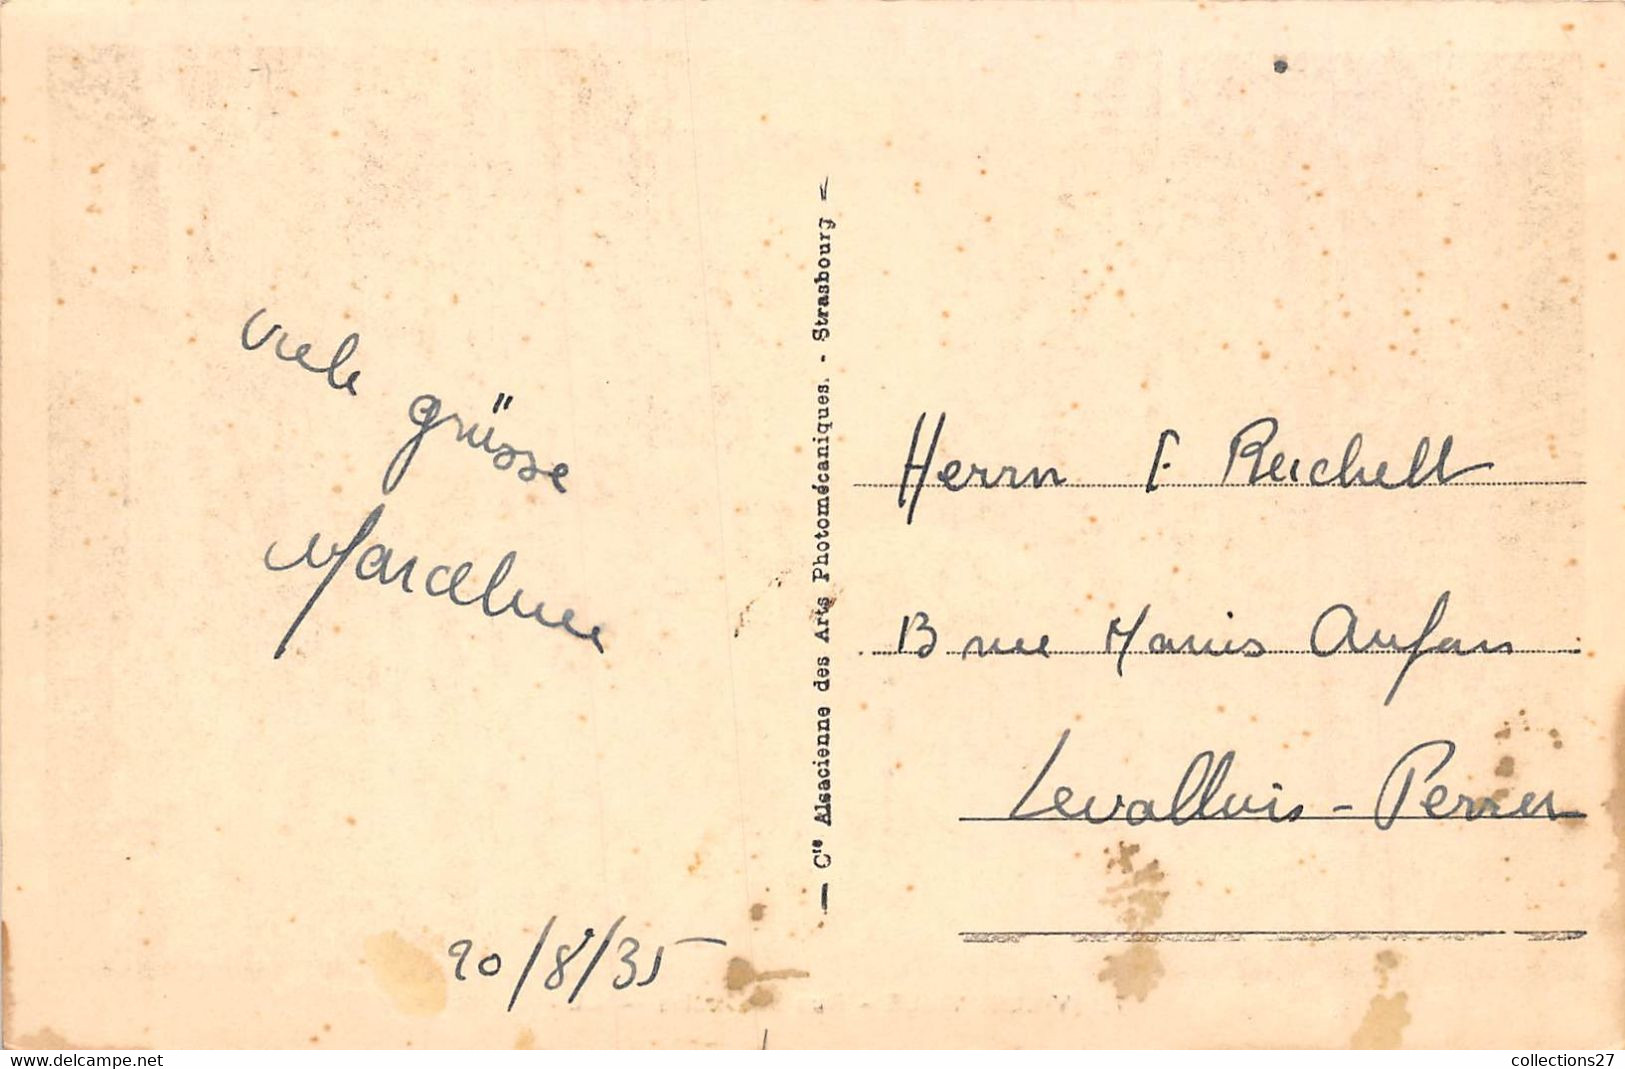 viele grüsse
Marceline
20/8/35
— Cie Alsacienne des Arts Photomécaniques. - Strasbourg —
Herrn F. Reichelt
13 rue Marius Aufan
Levallois - Perret
www.delcampe.net
collections27